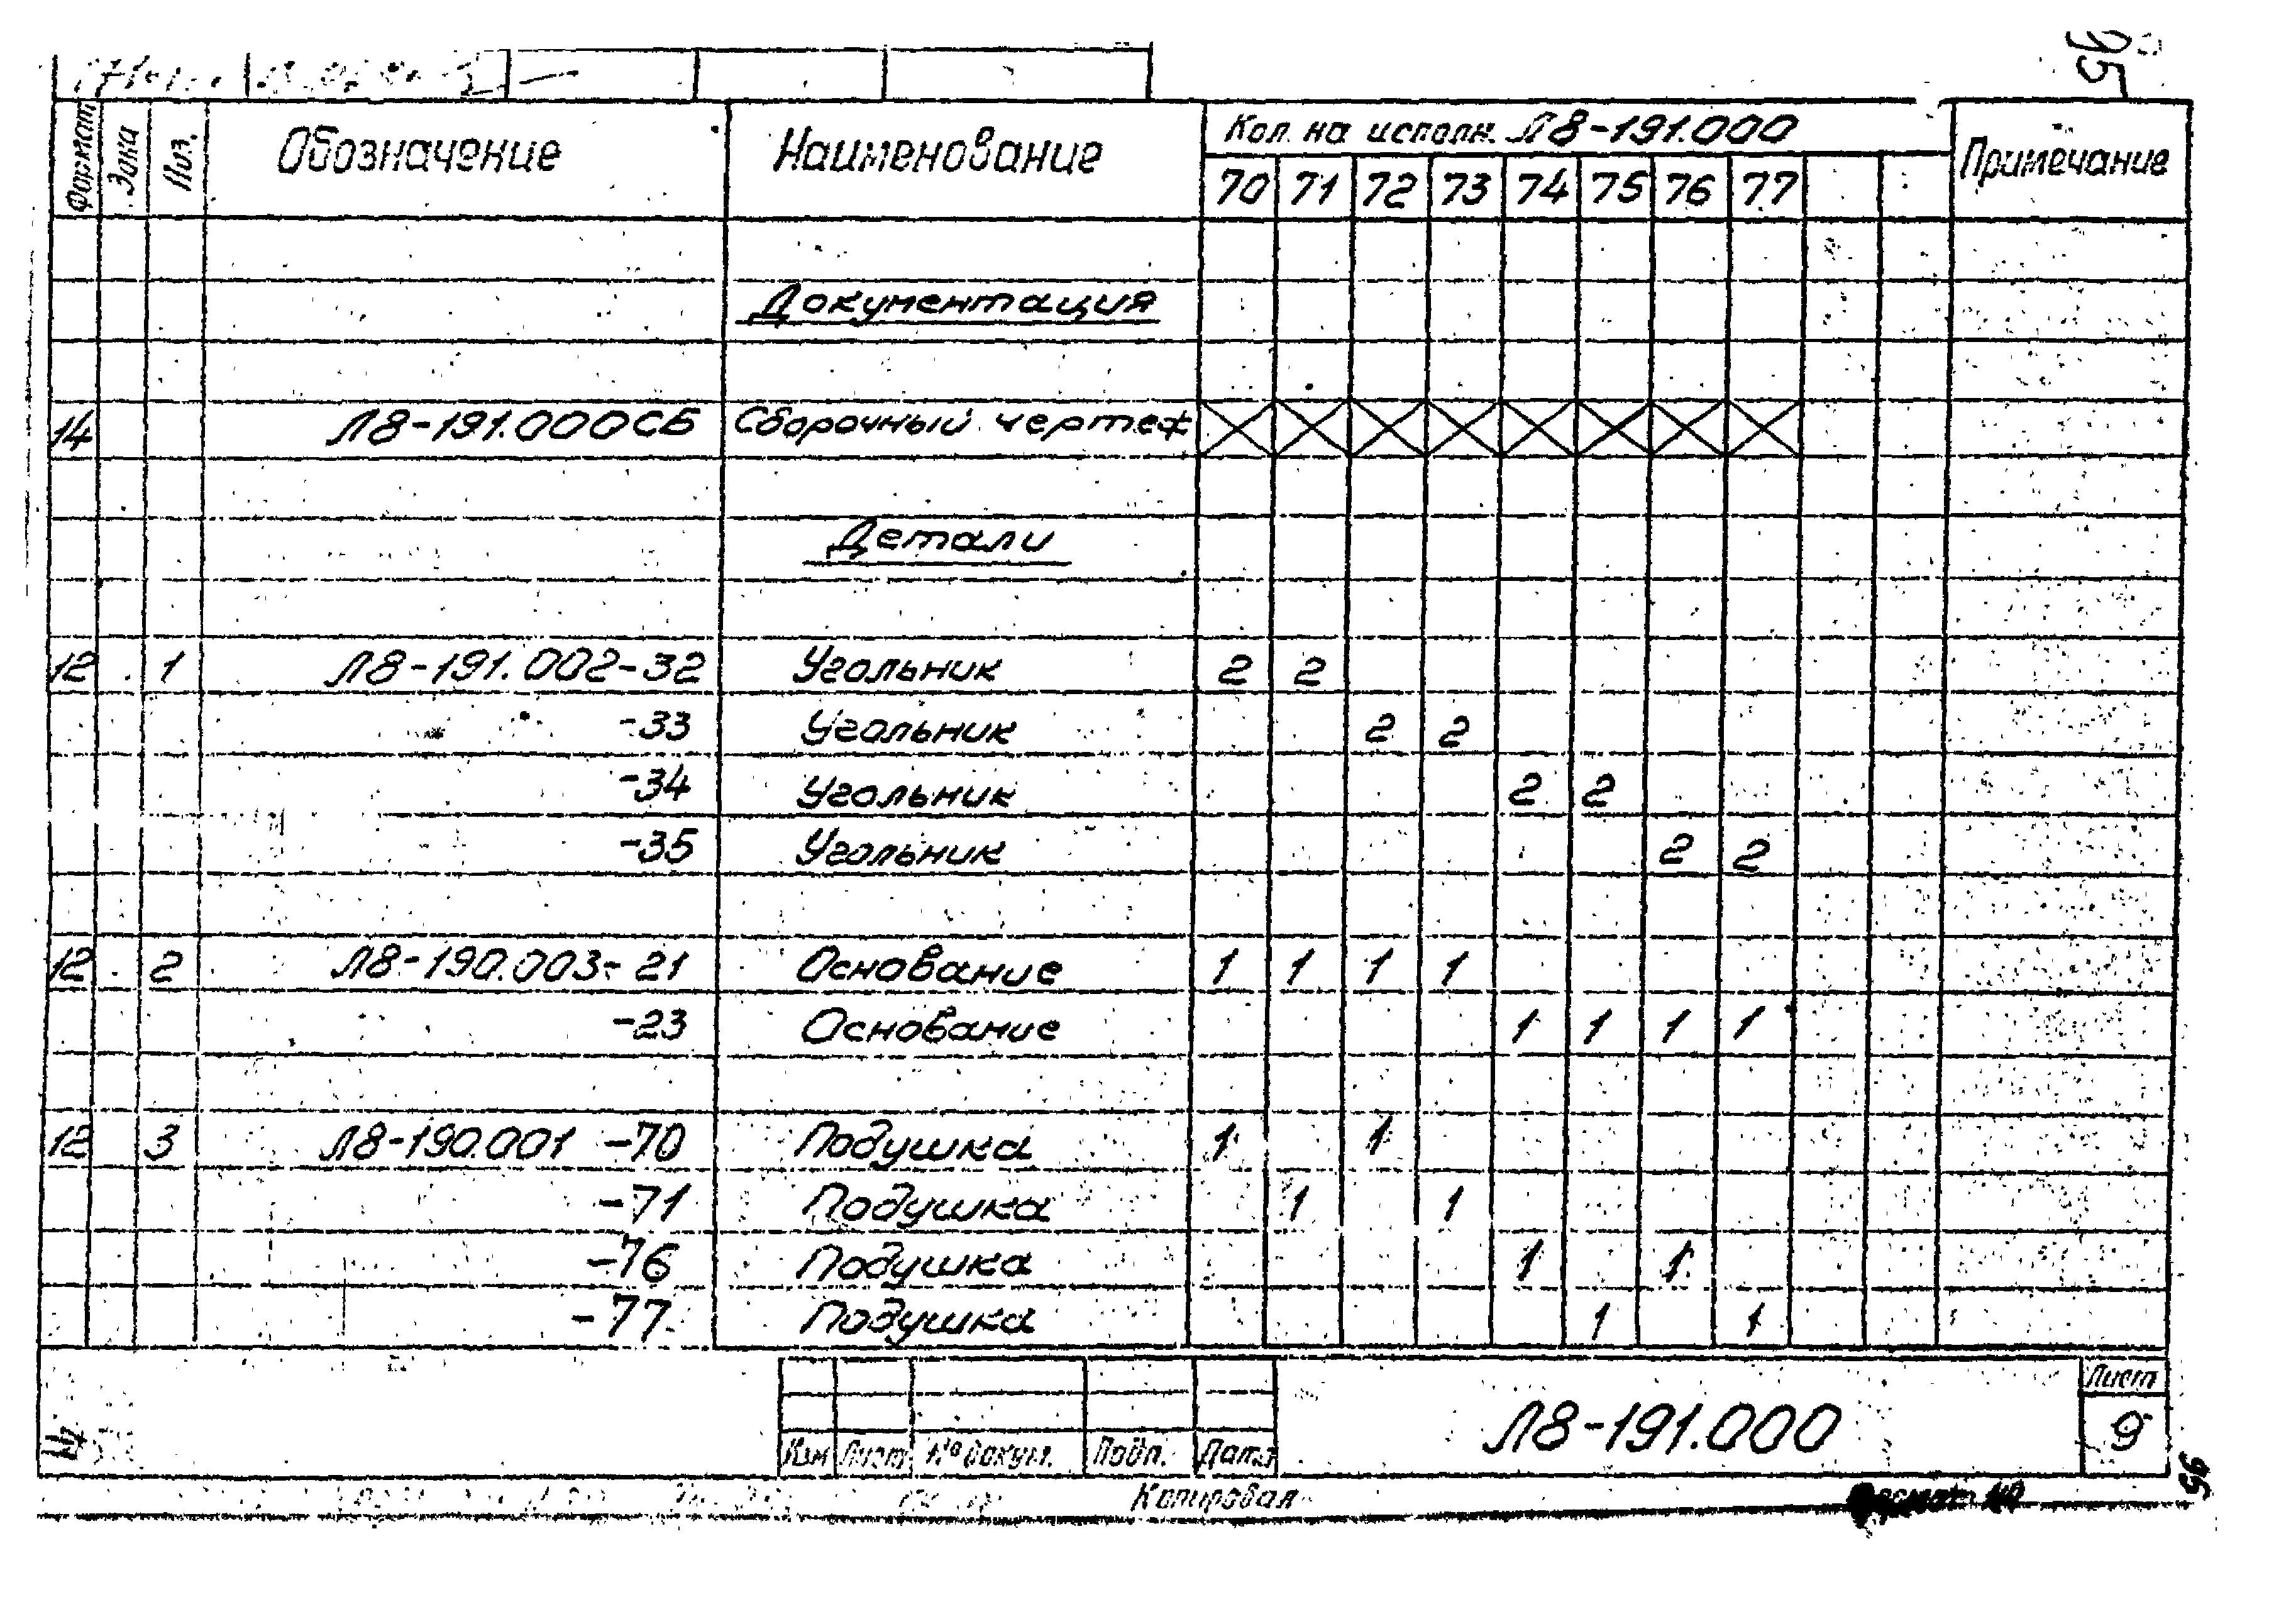 95
Формат Зона Поз. Обозначение Наименование Кол. на исполн. Л8-191.000 Примечание
70 71 72 73 74 75 76 77
Документация
14 Л8-191.000СБ Сборочный чертеж
Детали
12 1 Л8-191.002-32 Угольник 2 2
-33 Угольник 2 2
-34 Угольник 2 2
-35 Угольник 2 2
12 2 Л8-190.003-21 Основание 1 1 1 1
-23 Основание 1 1 1 1
12 3 Л8-190.001 -70 Подушка 1 1
-71 Подушка 1 1
-76 Подушка 1 1
-77 Подушка 1 1
Изм Лист № докум. Подп. Дата
Л8-191.000
Лист
9
Копировал
56